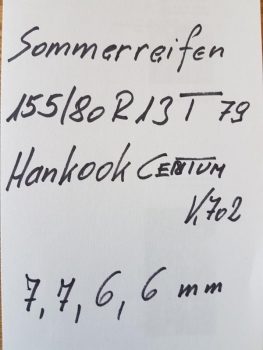 Sommerreifen
155/80 R 13 T 79
Hankook CENTUM
K702
7, 7, 6, 6 mm